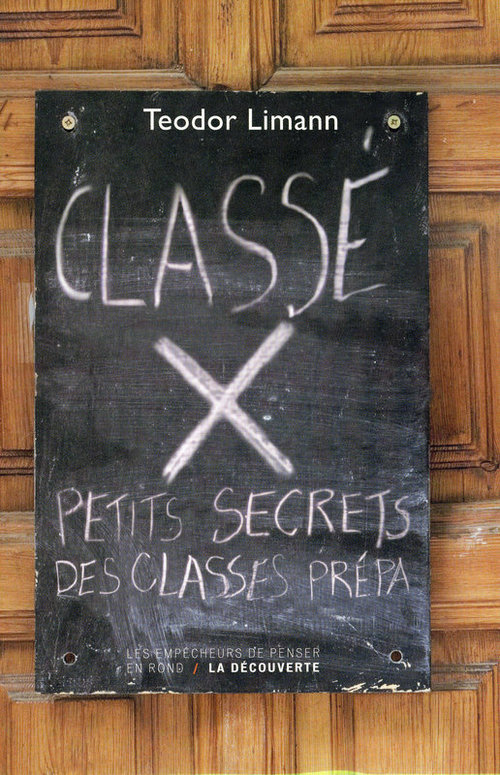 Teodor Limann
CLASSÉ
X
PETITS SECRETS
DES CLASSES PRÉPA
LES EMPÊCHEURS DE PENSER
EN ROND / LA DÉCOUVERTE